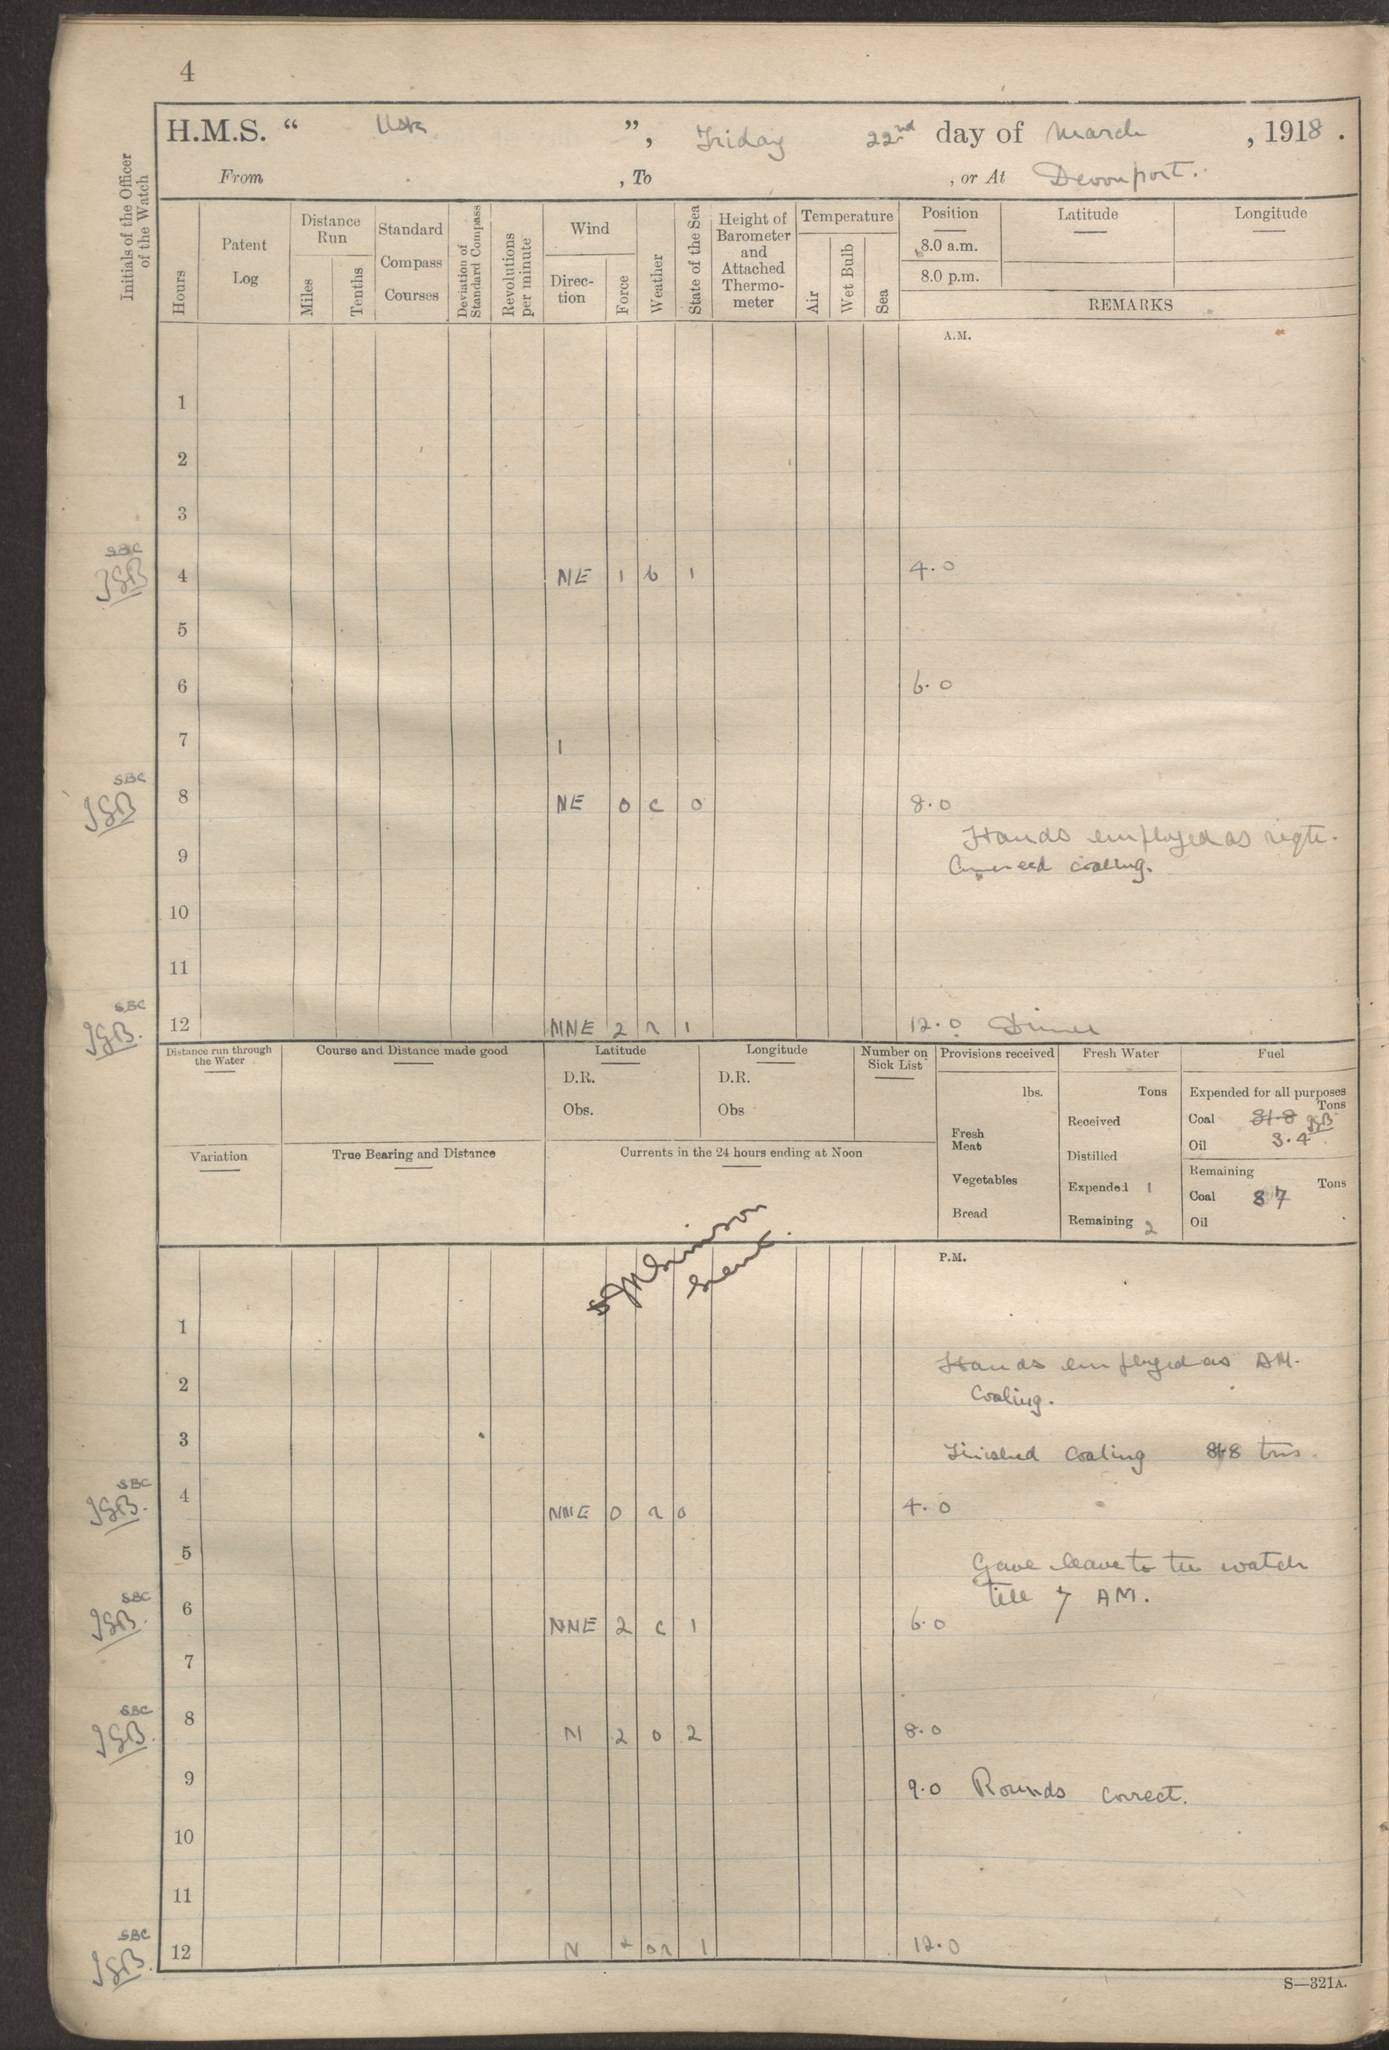 4
H.M.S. “ Usk ”, Friday 22nd day of March , 1918 .
From , To , or At Devonport.
Initials of the Officer of the Watch
Hours
Patent Log
Distance Run
Miles
Tenths
Standard Compass Courses
Deviation of Standard Compass
Revolutions per minute
Wind
Direc-tion
Force
Weather
State of the Sea
Height of Barometer and Attached Thermo-meter
Temperature
Air
Wet Bulb
Sea
Position Latitude Longitude
8.0 a.m.
8.0 p.m.
REMARKS
A.M.
1
2
3
SBC
JGB 4 NE 1 b 1 4.0
5
6 6.0
7 1
SBC
JGB 8 NE 0 c 0 8.0
Hands employed as reqte.
9 coaling.
10
11
SBC
JGB. 12 NNE 2 r 1 12.0 Dinner
Distance run through the Water
Course and Distance made good
Latitude
D.R.
Obs.
Longitude
D.R.
Obs
Number on Sick List
Provisions received
lbs.
Fresh Meat
Vegetables
Bread
Fresh Water
Tons
Received
Distilled
Expended 1
Remaining 2
Fuel
Expended for all purposes
Tons
Coal 81.8 JGB
3.4
Oil
Remaining
Tons
Coal 87
Oil
Variation
True Bearing and Distance
Currents in the 24 hours ending at Noon
P.M.
1
Hands employed as AM.
2 Coaling.
3 Finished coaling 88 tons.
SBC
JGB. 4 NNE 0 r 0 4.0
5 Gave leave to the watch
till 7 AM.
SBC
JGB. 6 NNE 2 c 1 6.0
7
SBC
JGB. 8 N 2 o 2 8.0
9 9.0 Rounds correct.
10
11
SBC
JGB. 12 N 2 or 1 12.0
S—321A.